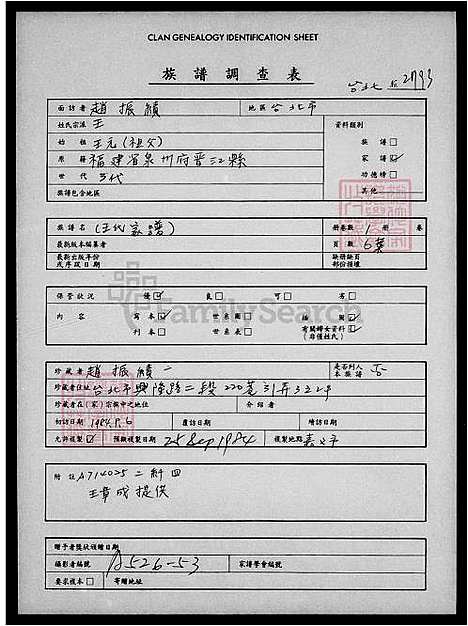 CLAN GENEALOGY IDENTIFICATION SHEET
族譜調查表
台北 2793
面訪者 趙振績 地區 台北市
姓氏宗派 王 資料類別
始祖 王元(祖父) 族譜
原籍 福建省泉州府晋江縣 家譜
世代 三代 功德榜
族譜包含地區 其他
族譜名 (王氏家譜) 冊卷數 1 冊 卷
最新版本編纂者 頁數 6葉
最新出版年份 缺冊缺頁
或序跋日期 部份損壞
保管狀況 優 良 可 劣
內容 寫本 世系圖 插圖
刊本 世系表 有關婦女資料
(非僅姓氏)
FamilySearch
珍藏者 趙振績 是否列入本族譜 否
珍藏者住址 台北市興隆路二段220巷31弄3之2号
珍藏者在(家)宗族中之地位 介紹者
初訪日期 1984.8.6 覆訪日期 續訪日期
允許複製 預擬複製日期 25 Sep 1984 複製地點
附註 A714025 二
王章成提供
贈予者獎狀頒贈日期
攝影者編號 A526-53 家譜學會編號
要求複本 寄贈地址